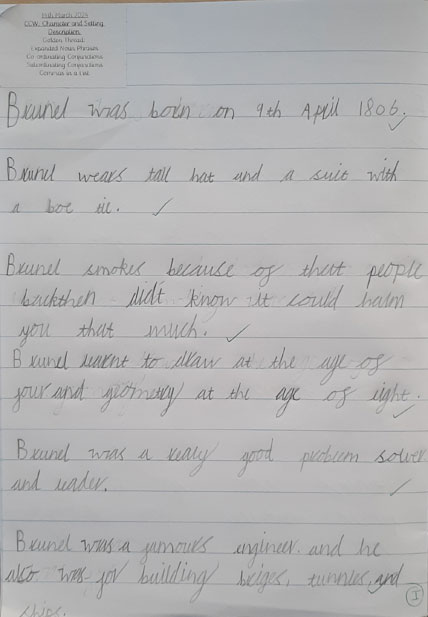 14th March 2024
CCW: Character and Setting
Description.
Golden Thread:
Expanded Noun Phrases
Co-ordinating Conjunctions
Subordinating Conjunctions
Commas in a List
Brunel was born on 9th April 1806.
Brunel wears tall hat and a suit with
a boe tie.
Brunel smokes because of thatt people
backthen didt know it could harm
you that much.
Brunel learnt to draw at the age of
four and geometry at the age of eight.
Brunel was a realy good problem solver
and leader.
Brunel was a famours engineer. and he
also was for building briges, tunnles, and
ships.
I